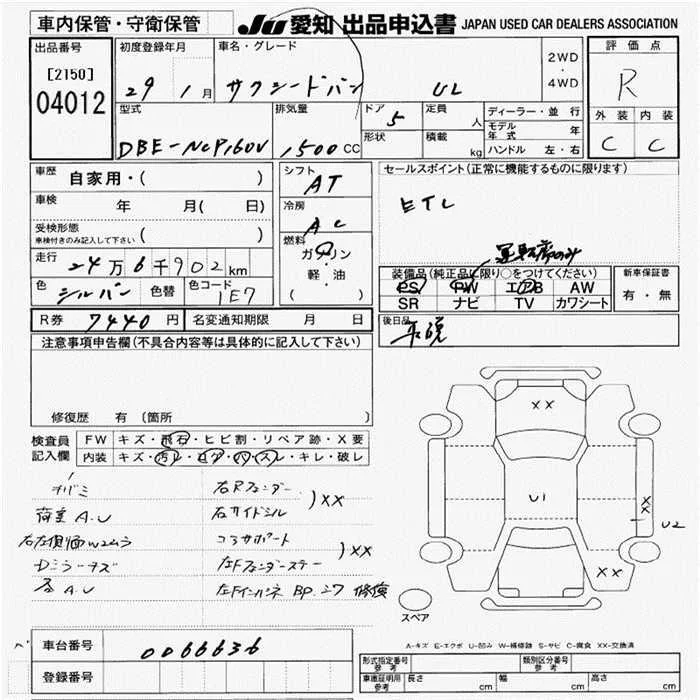 車内保管・守衛保管
JU 愛知 出品申込書 JAPAN USED CAR DEALERS ASSOCIATION
出品番号 初度登録年月 車名・グレード 2WD・4WD 評価点
[2150] 04012 29 1月 サクシードバン UL R
型式 排気量 ドア 5 定員 人 ディーラー・並行 外装 内装
DBE-NCP160V 1500CC 形状 積載 kg モデル年式 年 C C
ハンドル 左・右
車歴 自家用・( ) シフト AT セールスポイント(正常に機能するものに限ります)
車検 年 月( 日) 冷房 AC ETC
受検形態 車検付きのみ記入して下さい ( )
燃料 ガソリン 軽・油 ( ) 運転席のみ
走行 24万6千902km 装備品(純正品に限り○をつけてください) 新車保証書
色 シルバー 色替 色コード 1E7 PS PW エアB AW 有・無
SR ナビ TV カワシート
R券 7440円 名変通知期限 月 日 後日品 取説
注意事項申告欄(不具合内容等は具体的に記入して下さい)
修復歴 有 〔箇所
検査員記入欄 FW キズ・飛石・ヒビ割・リペア跡・X要
内装 キズ・汚レ・コゲ・ハ・スレ・キレ・破レ
荷室 A.U 右Rフェンダー )XX
右サイドシル
コアサポート )XX
Dミラーキズ 左Fフェンダーステー
A.U 左Fインパネ BP.シワ 修復
XX
U1
XX U2
XX
スペア
A-キズ E-エクボ U-凹み W-補修跡 S-サビ C-腐食 XX-交換済
車台番号 0066636
登録番号
形式指定番号 参考 類別区分番号 参考
車庫証明用 参考 長さ cm 幅 cm 高さ cm